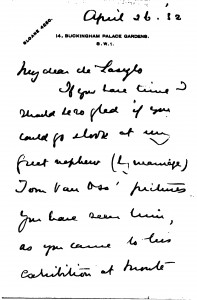 April 26. 32
SLOANE 4580.
14, BUCKINGHAM PALACE GARDENS.
S.W.1.
My dear de Laszlo
If you have time I
should be so glad if you
could go & look at my
great nephew (by marriage)
Tom Van Oss' pictures
You have seen him,
as you came to his
exhibition at Monte